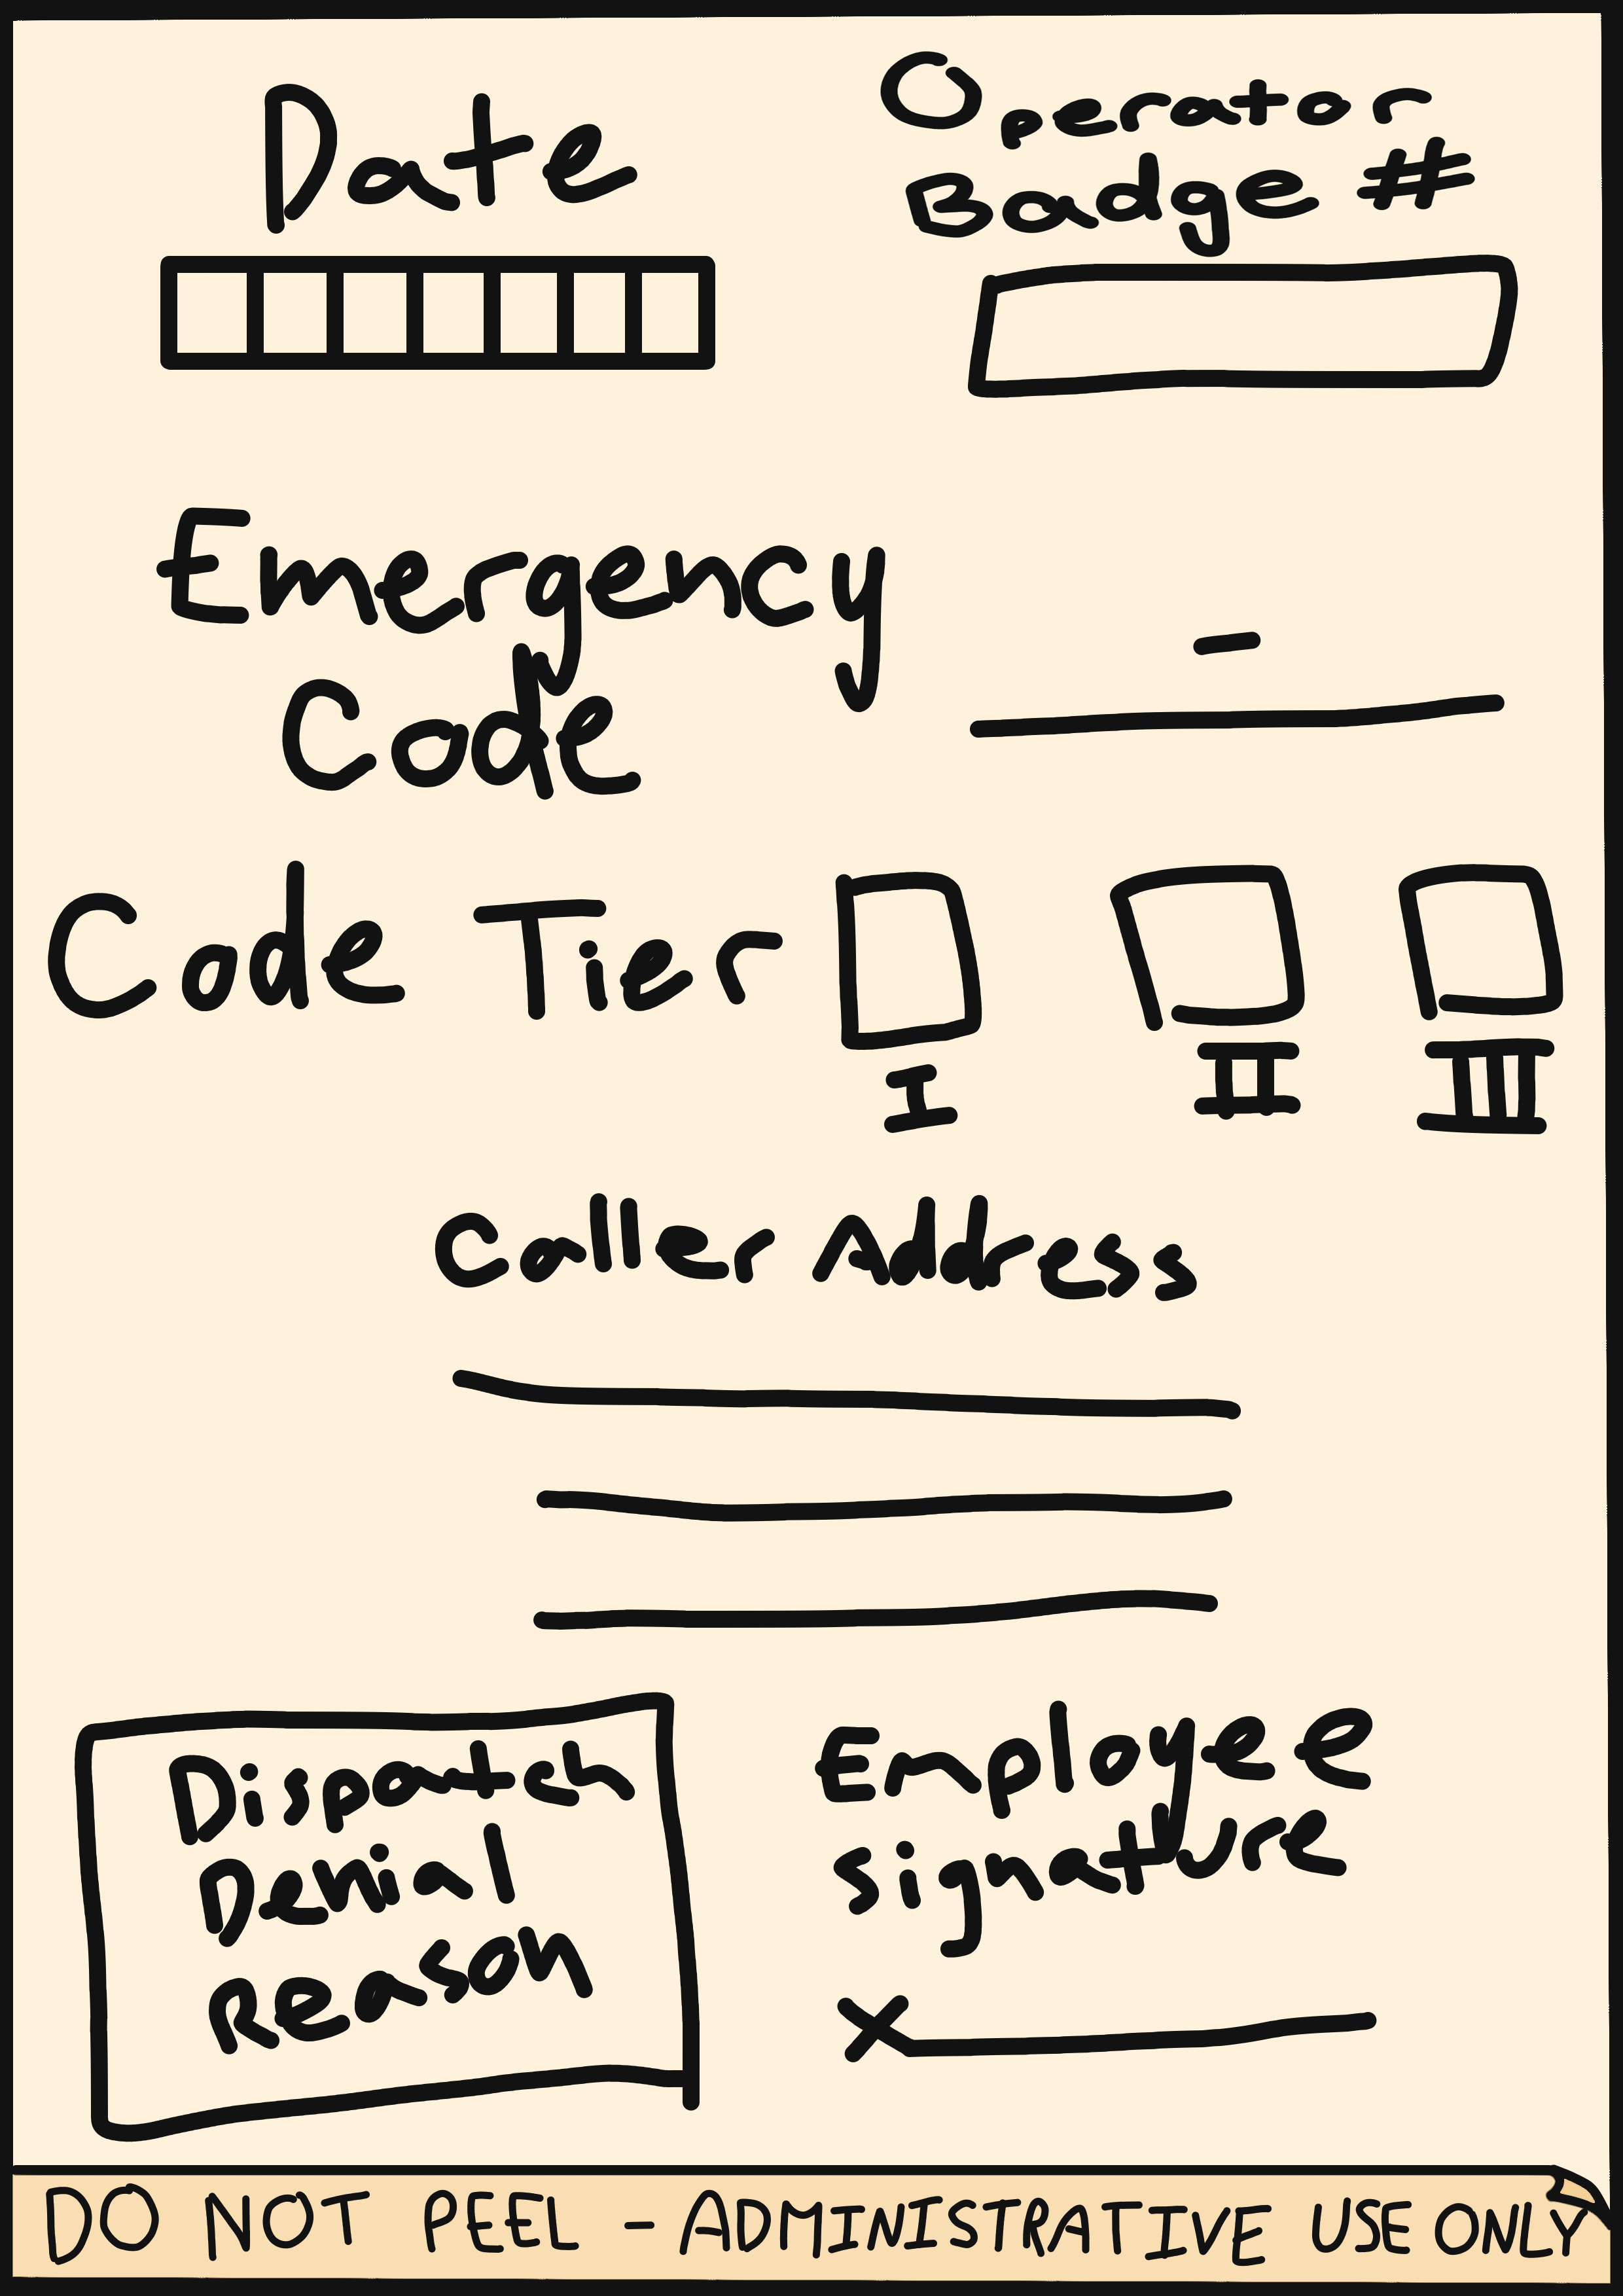 Date
Operator
Badge #
Emergency
Code
-
Code Tier
I II III
Caller Address
Dispatch
Denial
Reason
Employee
signature
X
DO NOT PEEL - ADMINISTRATIVE USE ONLY